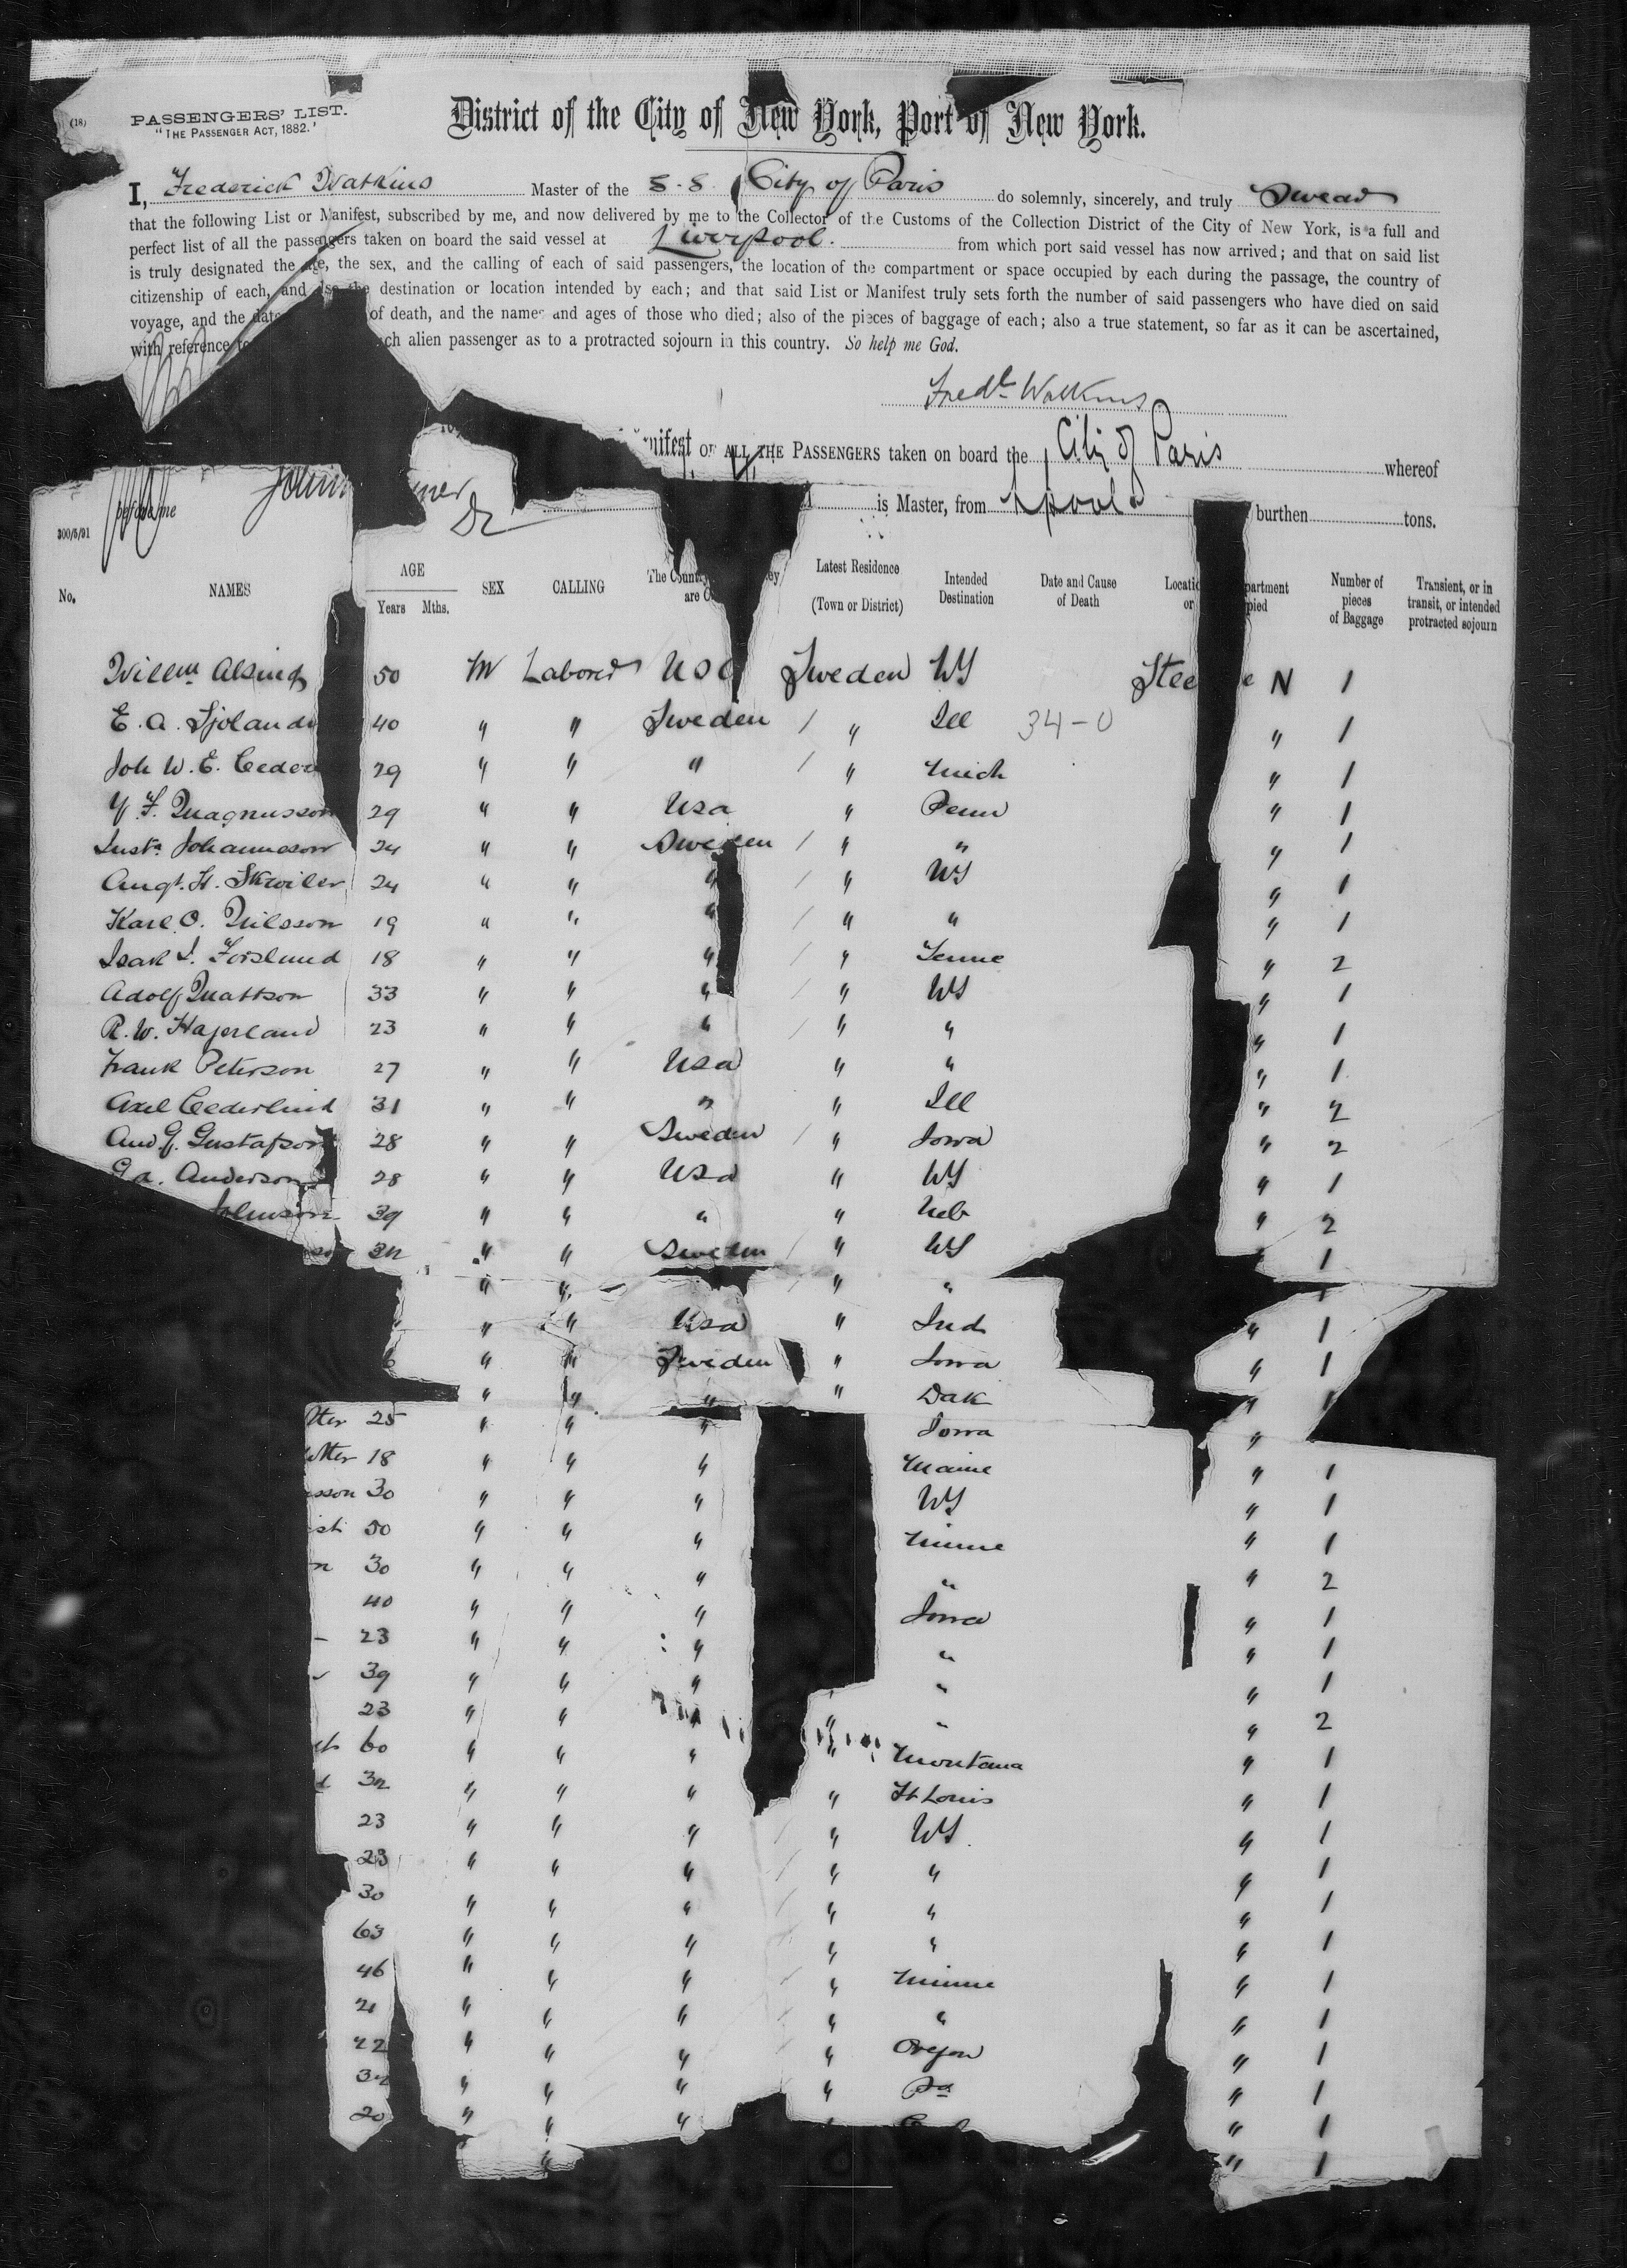 (18)
PASSENGERS' LIST.
"THE PASSENGER ACT, 1882."
District of the City of New York, Port of New York.
I, Frederick Watkins Master of the S.S. City of Paris do solemnly, sincerely, and truly Swear
that the following List or Manifest, subscribed by me, and now delivered by me to the Collector of the Customs of the Collection District of the City of New York, is a full and
perfect list of all the passengers taken on board the said vessel at Liverpool. from which port said vessel has now arrived; and that on said list
is truly designated the age, the sex, and the calling of each of said passengers, the location of the compartment or space occupied by each during the passage, the country of
citizenship of each, and also the destination or location intended by each; and that said List or Manifest truly sets forth the number of said passengers who have died on said
voyage, and the date of death, and the names and ages of those who died; also of the pieces of baggage of each; also a true statement, so far as it can be ascertained,
with reference to ch alien passenger as to a protracted sojourn in this country. So help me God.
Fredk Watkins
nifest OF ALL THE PASSENGERS taken on board the City of Paris whereof
before me John
is Master, from Lpool burthen tons.
300/5/91
No. NAMES AGE Years Mths. SEX CALLING The Country are Latest Residence (Town or District) Intended Destination Date and Cause of Death Locatio or partment pied Number of pieces of Baggage Transient, or in transit, or intended protracted sojourn
Willm Alsing 50 M Laborer USA Sweden NY Stee e N 1
E. A. Sjoland 40 " " Sweden / " Ill 34-0 " 1
Joh W. E. Ceder 29 " " " / " Mich " 1
Y. F. Magnusson 29 " " Usa " Penn " 1
Gust. Johannson 24 " " Sweden / " " " 1
Augt. H. Skwiler 24 " " " / " NY " 1
Karl O. Nilsson 19 " " " / " " " 1
Isak I. Forslund 18 " " " / " Tenne " 2
Adolf Mattson 33 " " " / " NY " 1
R. W. Hagerland 23 " " " / " " " 1
Frank Peterson 27 " " Usa " " " 1
Axel Cederlind 31 " " " " Ill " 2
And G. Gustafson 28 " " Sweden / " Iowa " 2
a. Anderson 28 " " Usa " NY " 1
Johnson 39 " " " " Neb " 2
34 " " Sweden / " NY 1
" " / " "
" " Usa " Ind " 1
" " Sweden " Iowa " 1
" " " " Dak " 1
tter 25 " " " Iowa "
tter 18 " " " Maine " 1
sson 30 " " " NY " 1
st 50 " " " Minne " 1
n 30 " " " " " 2
40 " " " Iowa " 1
23 " " " " " 1
39 " " " " " 1
23 " " " " " " 2
60 " " " " Montana " 1
32 " " " " St Louis " 1
23 " " " / " NY " 1
23 " " " / " " " 1
30 " " " / " " " 1
63 " " " " " " 1
46 " " " / " Minne " 1
21 " " " " " " 1
22 " " " " Oregon " 1
32 " " " " Pa " 1
20 " " " " 1
" " 1